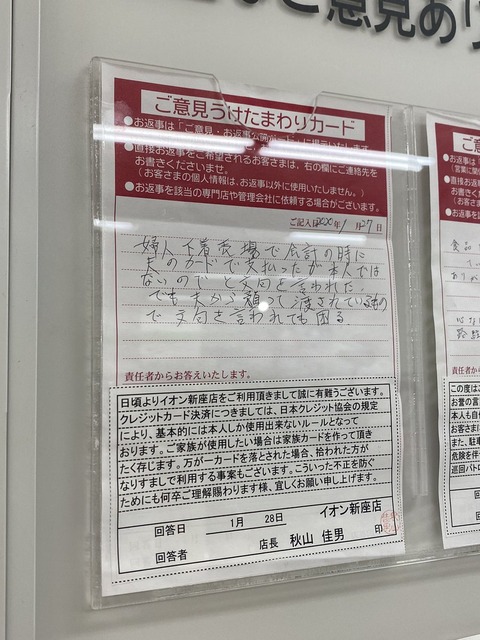 ご意見あり
ご意見うけたまわりカード
●お返事は「ご意見・お返事公開ボード」に掲示いたします。
●直接お返事をご希望されるお客さまは、右の欄にご連絡先を
お書きくださいませ。
(お客さまの個人情報は、お返事以外に使用いたしません。)
●お返事を該当の専門店や管理会社に依頼する場合がございます。
ご記入日2020年1月27日
婦人下着売場で会計の時に
夫のカードで支払ったが本人では
ないのでと文句を言われた。
でも夫から頼って渡されているもの
で文句を言われても困る
責任者からお答えいたします。
日頃よりイオン新座店をご利用頂きまして誠に有難うございます。
クレジットカード決済につきましては、日本クレジット協会の規定
により、基本的には本人しか使用出来ないルールとなって
おります。ご家族が使用したい場合は家族カードを作って頂き
たく存じます。万が一カードを落とされた場合、拾われた方が
なりすまして利用する事案もございます。こういった不正を防ぐ
ためにも何卒ご理解賜わります様、宜しくお願い申し上げます。
回答日 1月 28日 イオン新座店
回答者 店長 秋山 佳男 印
ご意
●お返事は
●直接お返
お書きく
(お客さま
●お返事を
食品
責任
この度は
お誉の言
本人も自
お客さま
また、駐
危険を伴
巡回パトロ
回答
回答